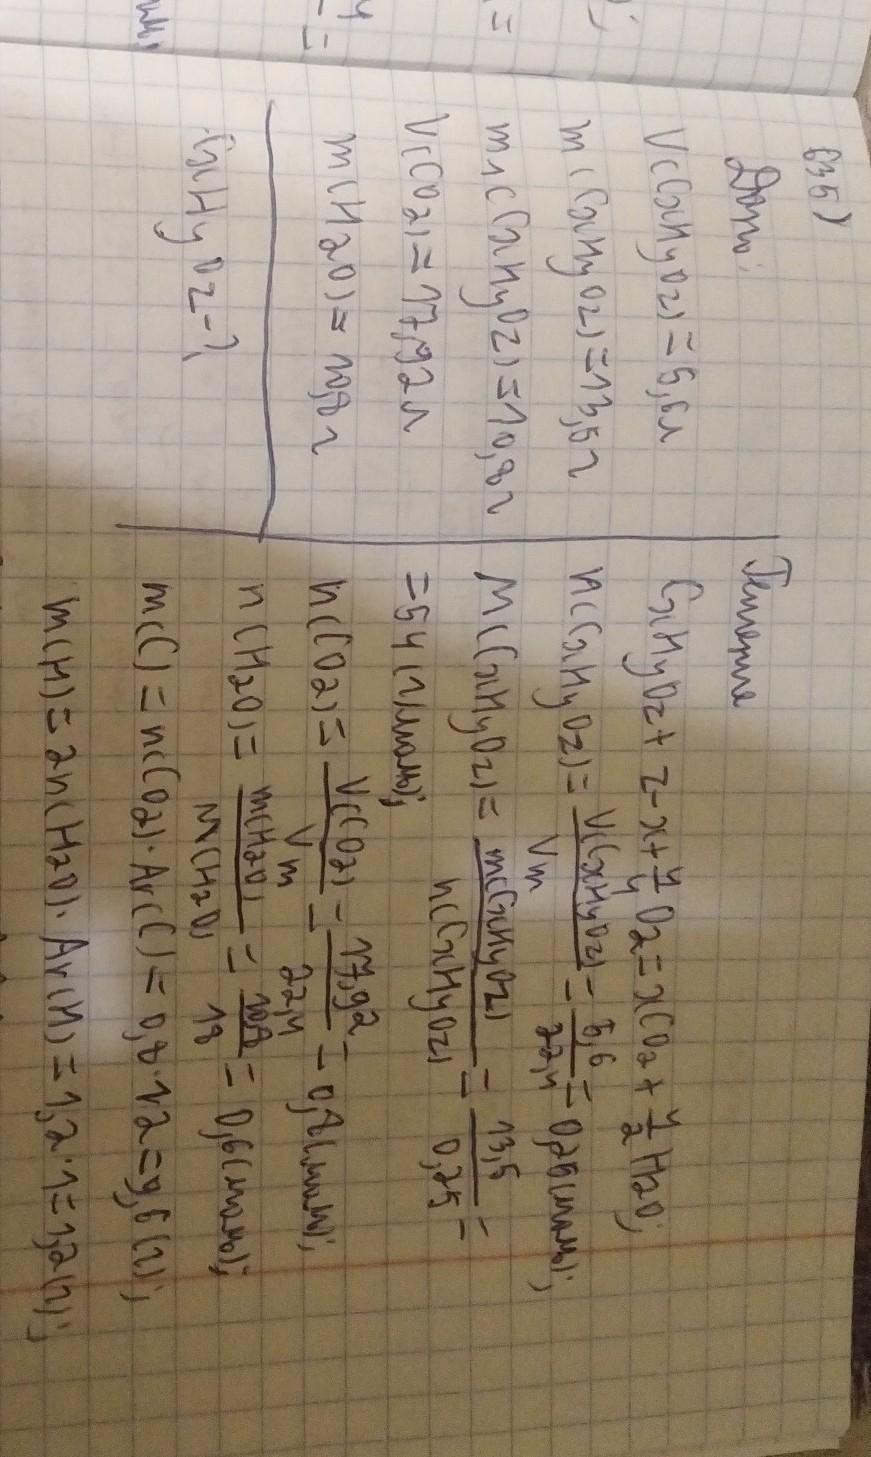 635)
Дано:
V(CxHyOz)=5,6л
m(CxHyOz)=13,5г
m1(CxHyOz)=10,8г
V(CO2)=17,92л
m(H2O)=10,8г
CxHyOz-?
Решение
CxHyOz+z-x+y/4O2=xCO2+y/2H2O;
n(CxHyOz)=V(CxHyOz)/Vm=5,6/22,4=0,25(моль);
M(CxHyOz)=m(CxHyOz)/n(CxHyOz)=13,5/0,25=
=54(г/моль);
n(CO2)=V(CO2)/Vm=17,92/22,4=0,8(моль);
n(H2O)=m(H2O)/M(H2O)=10,8/18=0,6(моль);
m(C)=n(CO2)·Ar(C)=0,8·12=9,6(г);
m(H)=2n(H2O)·Ar(H)=1,2·1=1,2(г);